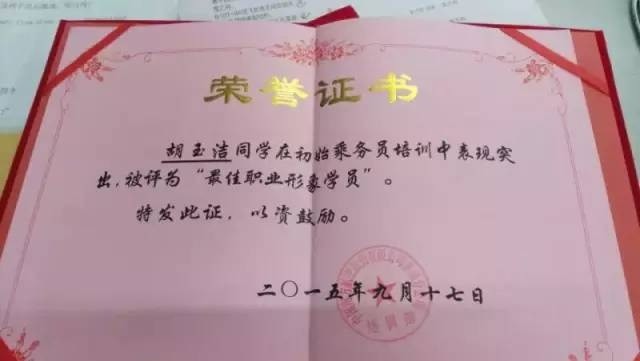 荣誉证书
胡玉洁同学在初始乘务员培训中表现突
出,被评为“最佳职业形象学员”。
特发此证,以资鼓励。
二〇一五年九月十七日